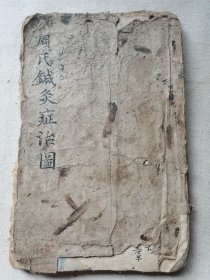 周氏鍼灸症治圖